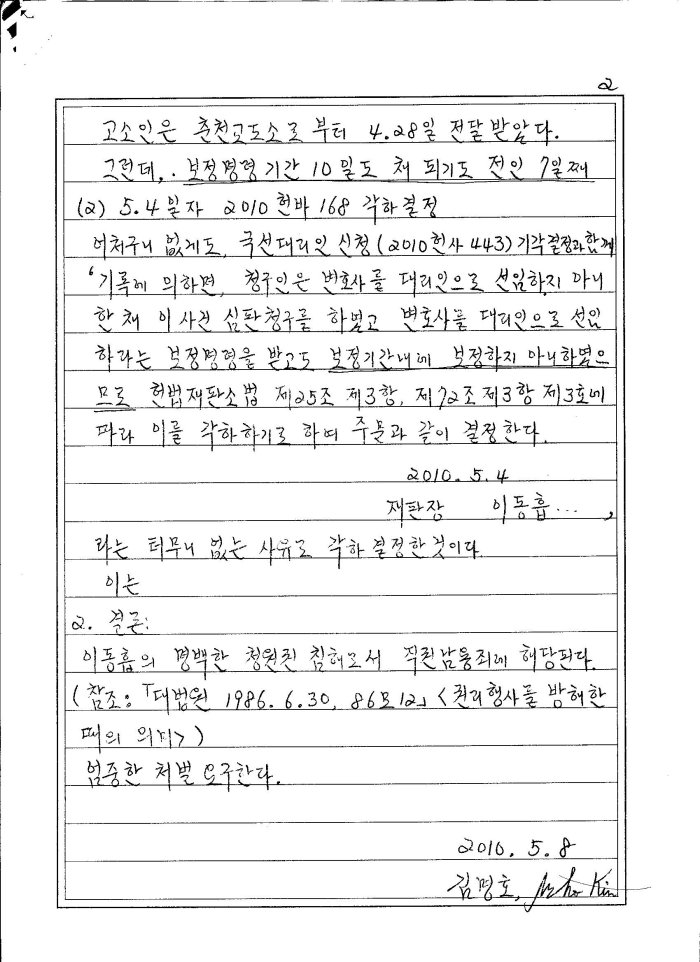 2
고소인은 춘천교도소로 부터 4.28일 전달 받았다.
그런데, . 보정명령 기간 10일도 채 되기도 전인 7일째
(2) 5.4일자 2010헌바168 각하결정
어처구니 없게도, 국선대리인 신청(2010헌사443)기각결정과 함께
'기록에 의하면, 청구인은 변호사를 대리인으로 선임하지 아니
한 채 이 사건 심판청구를 하였고 변호사를 대리인으로 선임
하라는 보정명령을 받고도 보정기간내에 보정하지 아니하였으
므로 헌법재판소법 제25조 제3항, 제72조 제3항 제3호에
따라 이를 각하하기로 하여 주문과 같이 결정한다.
2010. 5. 4
재판장 이동흡... ,
라는 터무니 없는 사유로 각하 결정한 것이다.
이는
2. 결론:
이동흡의 명백한 청원권 침해로서 직권남용죄에 해당된다.
(참조:「대법원 1986. 6. 30, 86모12」<권리행사를 방해한
때의 의미>)
엄중한 처벌 요구한다.
2010. 5. 8
김명호,